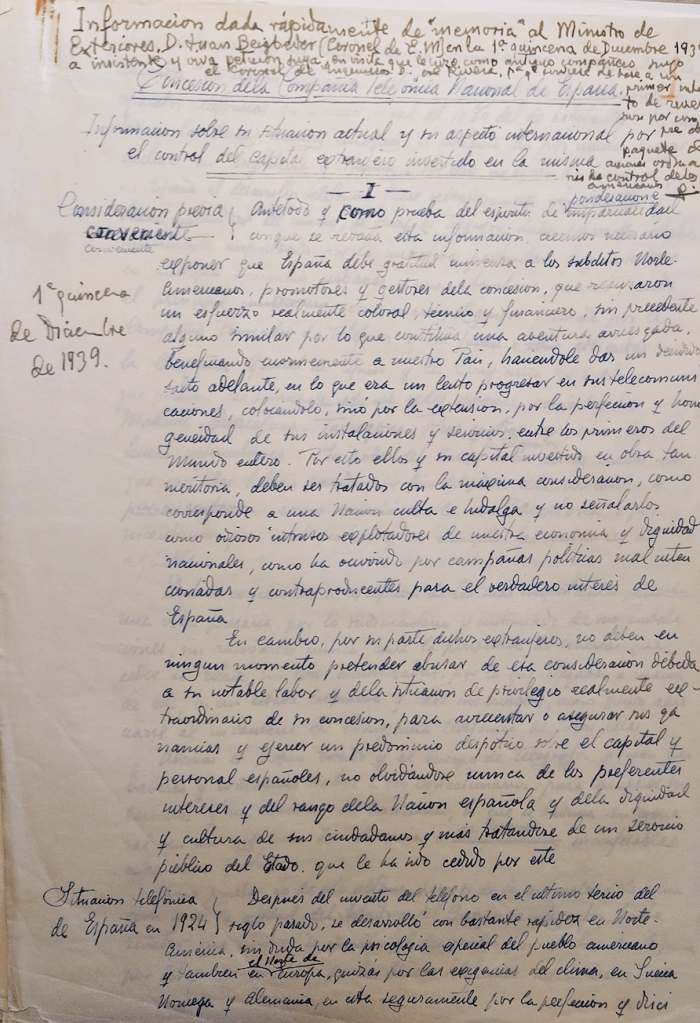 Informacion dada rápidamente de "memoria" al Ministro de
Exteriores, D. Juan Beigbeder (Coronel de E.M) en la 1ª quincena de Diciembre 1939
a insistente y viva peticion suya, en visita que le hizo como antiguo compañero suyo
el Coronel de Ingenieros D. José Rivera, de base a un
primer inten
to de rever
sion por com
pra de
paquete de
acciones ordina
rias ha control de los
americanos
Concesion dela Compañia Telefónica Nacional de España.
Informacion sobre su situacion actual y su aspecto internacional por
el control del capital extranjero invertido en la misma
I
Consideracion previa
conveniente
1ª quincena
de Diciembre
de 1939.
Antetodo y como prueba del espiritu de imparcialidad
ponderacion
conque se redacta esta informacion, creemos necesario
exponer que España debe gratitud inmensa a los subditos Norte-
Americanos, promotores y gestores dela concesion, que realizaron
un esfuerzo realmente colosal, técnico y financiero, sin precedente
alguno similar por lo que constituia una aventura arriesgada,
beneficiando enormemente a nuestro Pais, haciendole dar un decidido
salto adelante, en lo que era un lento progresar en sus telecomuni
caciones, colocándolo, sinó por la extension, por la perfeccion y homo
geneidad de sus instalaciones y servicios, entre los primeros del
Mundo entero. Por esto ellos y su capital invertido en obra tan
meritoria, deben ser tratados con la máxima consideracion, como
corresponde a una Nacion culta e hidalga y no señalarlos
como odiosos intrusos explotadores de nuestra economia y dignidad
nacionales, como ha ocurrido por campañas politicas mal inten
cionadas y contraproducentes para el verdadero interés de
España
En cambio, por su parte dichos extranjeros, no deben en
ningun momento pretender abusar de esa consideracion debida
a su notable labor y dela situacion de privilegio realmente ex-
traordinario de su concesion, para acrecentar o asegurar sus ga
nancias y ejercer un predominio despótico sobre el capital y
personal españoles, no olvidándose nunca de los preferentes
intereses y del rango dela Nacion española y dela dignidad
y cultura de sus ciudadanos y más tratandose de un servicio
público del Estado, que le ha sido cedido por este
Situacion telefónica
de España en 1924
Después del invento del teléfono en el ultimo tercio del
siglo pasado, se desarrolló con bastante rapidez en Norte-
América, sin duda por la psicologia especial del pueblo americano
y tambien en el Norte de Europa, quizás por las exigencias del clima, en Suecia
Noruega y Alemania, en esta seguramente por la perfeccion y disci